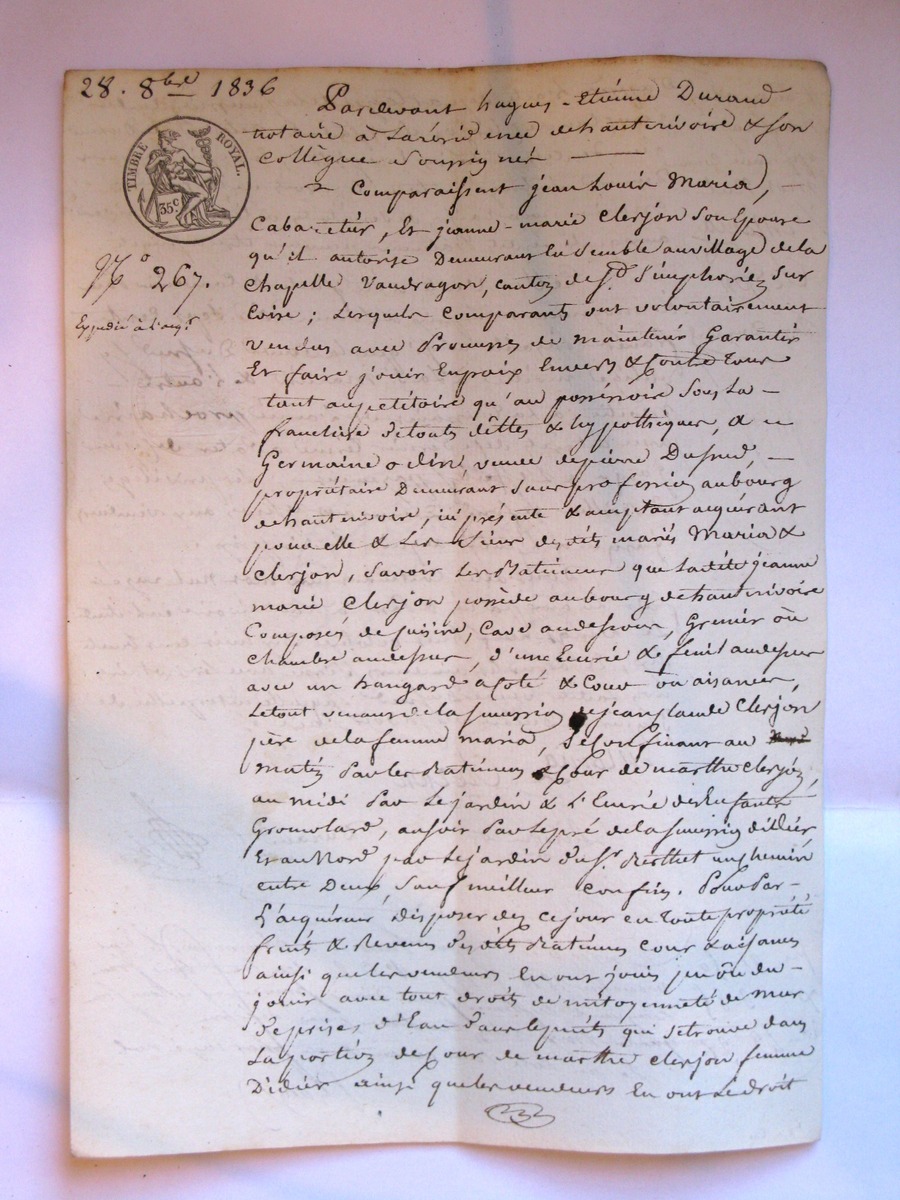 28. 8bre 1836
TIMBRE ROYAL.
35c
No 267.
Expédié à l'aqr
Pardevant hugues-Etiénne Durand
notaire a Larésidence dehauterivoire & son
Collègue Soussignés
Comparaissent jean Louis Maria,
Cabaretiér, Et jeanne-marié Clerjon Son Epouse
qu'il autorise Demeurant En Semble auvillage de la
Chapelle Vaudragon, canton de St. Simphorien Sur
Coise; Lesquels Comparants ont volontairement
vendus avec Promesses de maintenir Garantir
Et faire jouir Enpaix Envers & Contre Tous
tant aupetitoire qu'au posséssoire Sous La
franchise detouts déttes & hypothèques, a
Germaine odin, veuve depierre Dusud,
propriétaire Demeurant Sans profession aubourg
dehauterivoire, ici présente & acceptant acquérant
pour elle & Les Siens desdits mariés Maria &
Clerjon, Savoir Les Batimens que Ladite jeanne
marié Clerjon possède aubourg dehauterivoire
Composés de Cuisine, Cave audessous, Grenier ou
Chambre audessus, d'une Ecurié & fenil audessus
avec un hangard acoté & Cour ou aisances,
Letout venant delasuccession dejeanclaude Clerjon
père delafemme maria, Seconfinant au
matin Par Les Batimens & Cour de marthe Clerjon,
au midi Par Lejardin & L'Ecurie des Enfants
Gromolard, ausoir Par Lepré delasuccession dillier
Et au Nord par Lejardin du Sr. Berthet un chemin
entre Deux, Sauf meilleur confins. Pour Par
L'acquéreur disposer des cejour en toute propriété
fruits & Revenus desdits Batimens cour & aisances
ainsi que les vendeurs En ont joui pu ou du
jouir avec tout droits de mitoyenneté de mur
deprises d'Eau dans lepuits qui setrouve dans
La portion decour de marthe clerjon femme
Didier ainsi que les vendeurs En ont Le droit